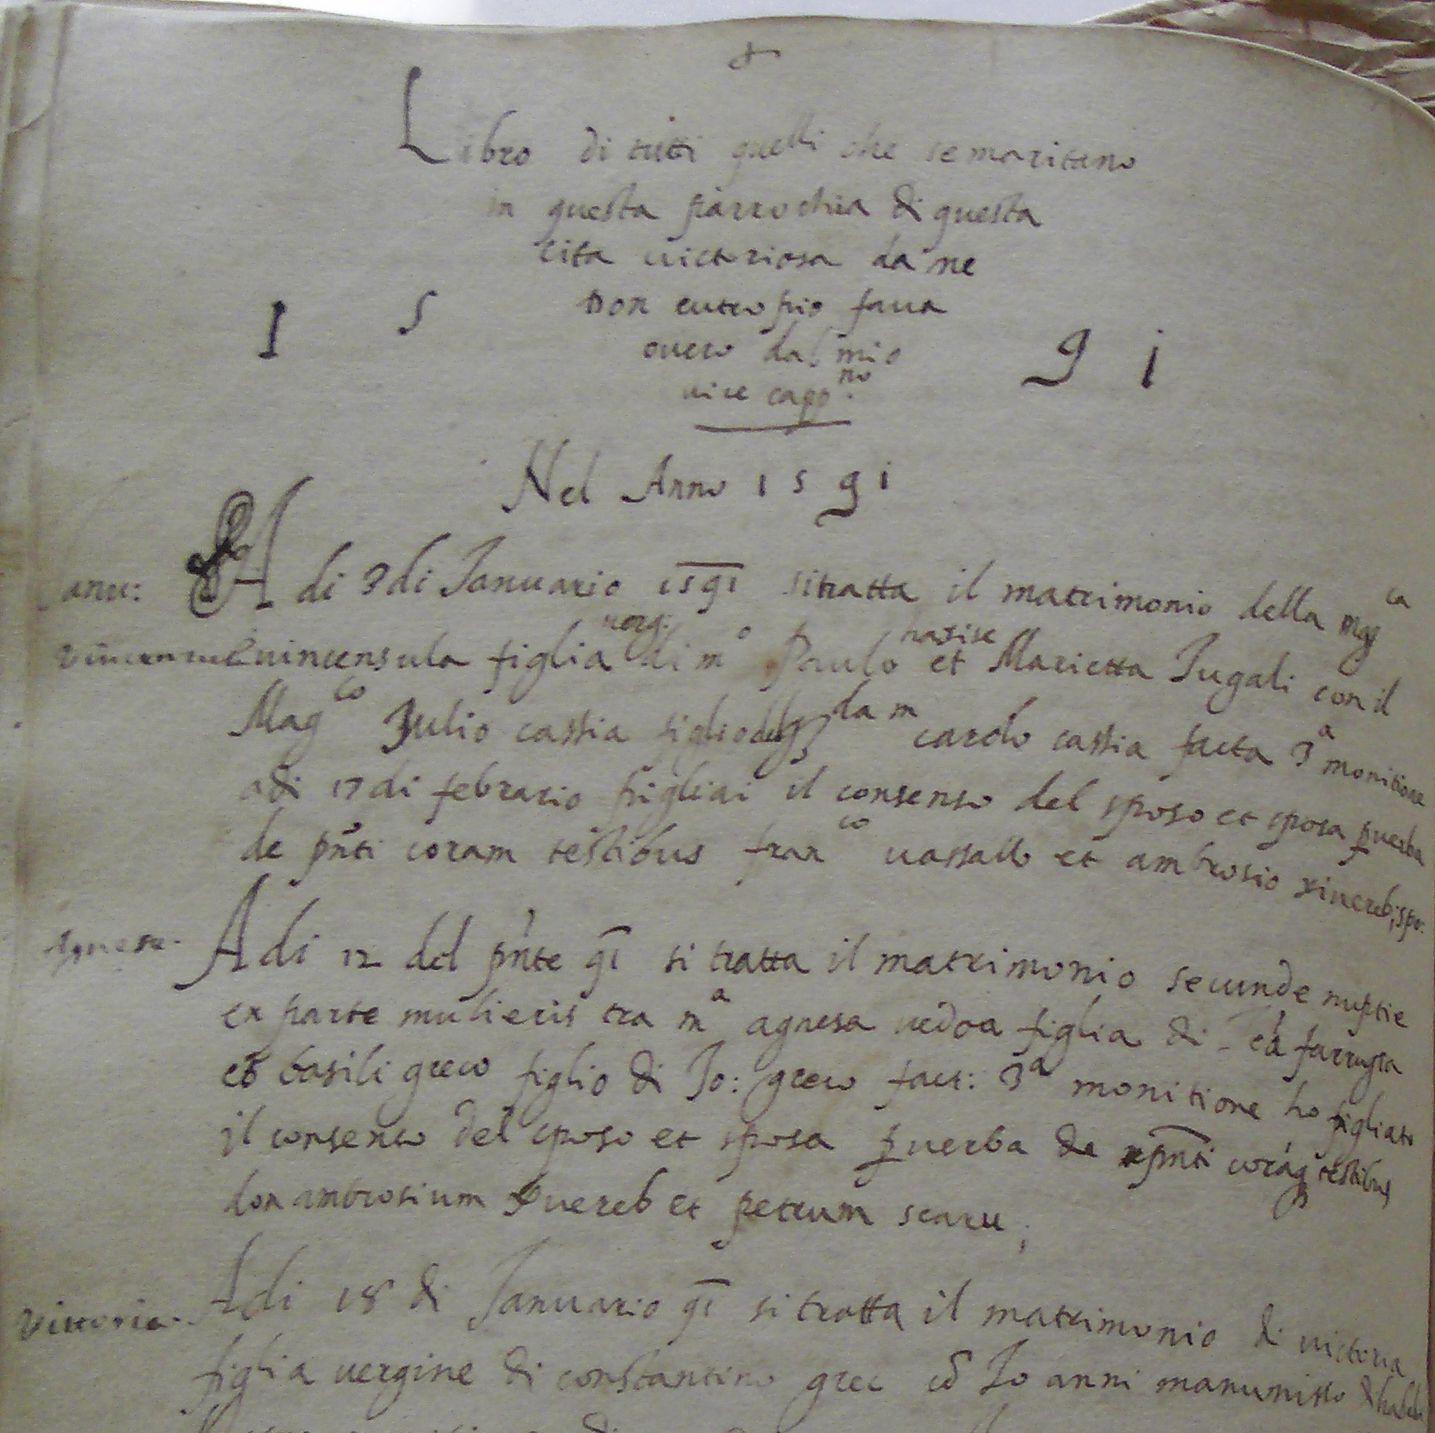 Libro di tutti quelli che se maritano
in questa parrochia di questa
cita victoriosa da me
Don eutropio faua
overo dal mio
vice capp.no
1 5 9 1
Nel Anno 1591
Janu: A di 9 di Ianuario 1591 si tratta il matrimonio della mg ca
uincensula figlia uerg: di m o Paulo et Marietta Iugali con il
Mag co Iulio cassia figlio del q da m carolo cassia facta 3 a monitione
adi 17 di febrario pigliai il consenso del sposo et sposa p uerba
de pnti coram testibus fran co uassallo et ambrosio
Agnesa. Adi 12 del pnte 91 si tratta il matrimonio secunde nuptie
ex parte mulieris tra m a agnesa uedoa figlia di farrugia
et basili greco figlio di Io: greco fact: 3 a monitione ho pigliato
il consenso del sposo et sposa p uerba de pnti testibus
don ambrosium et petrum scaru
Vittoria. Adi 18 di Ianuario 91 si tratta il matrimonio di uictoria
figlia uergine di constantino grec co Io anni manumisso